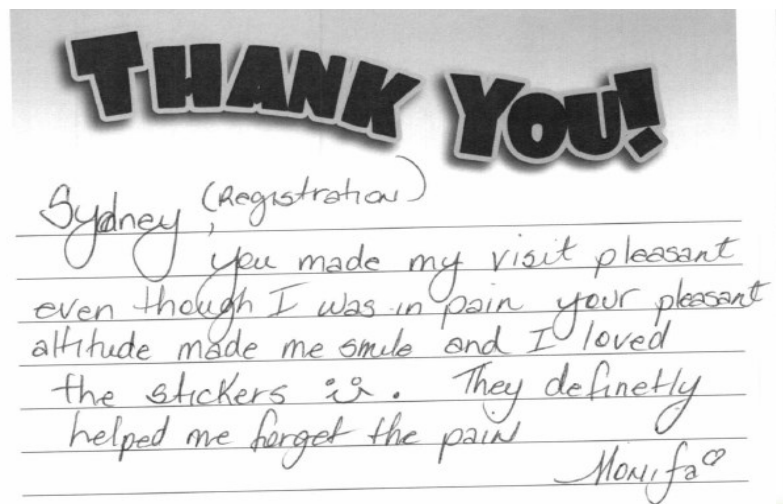 THANK YOU!
Sydney, (Registration)
you made my visit pleasant
even though I was in pain your pleasant
attitude made me smile and I loved
the stickers . They definetly
helped me forget the pain
Monifa